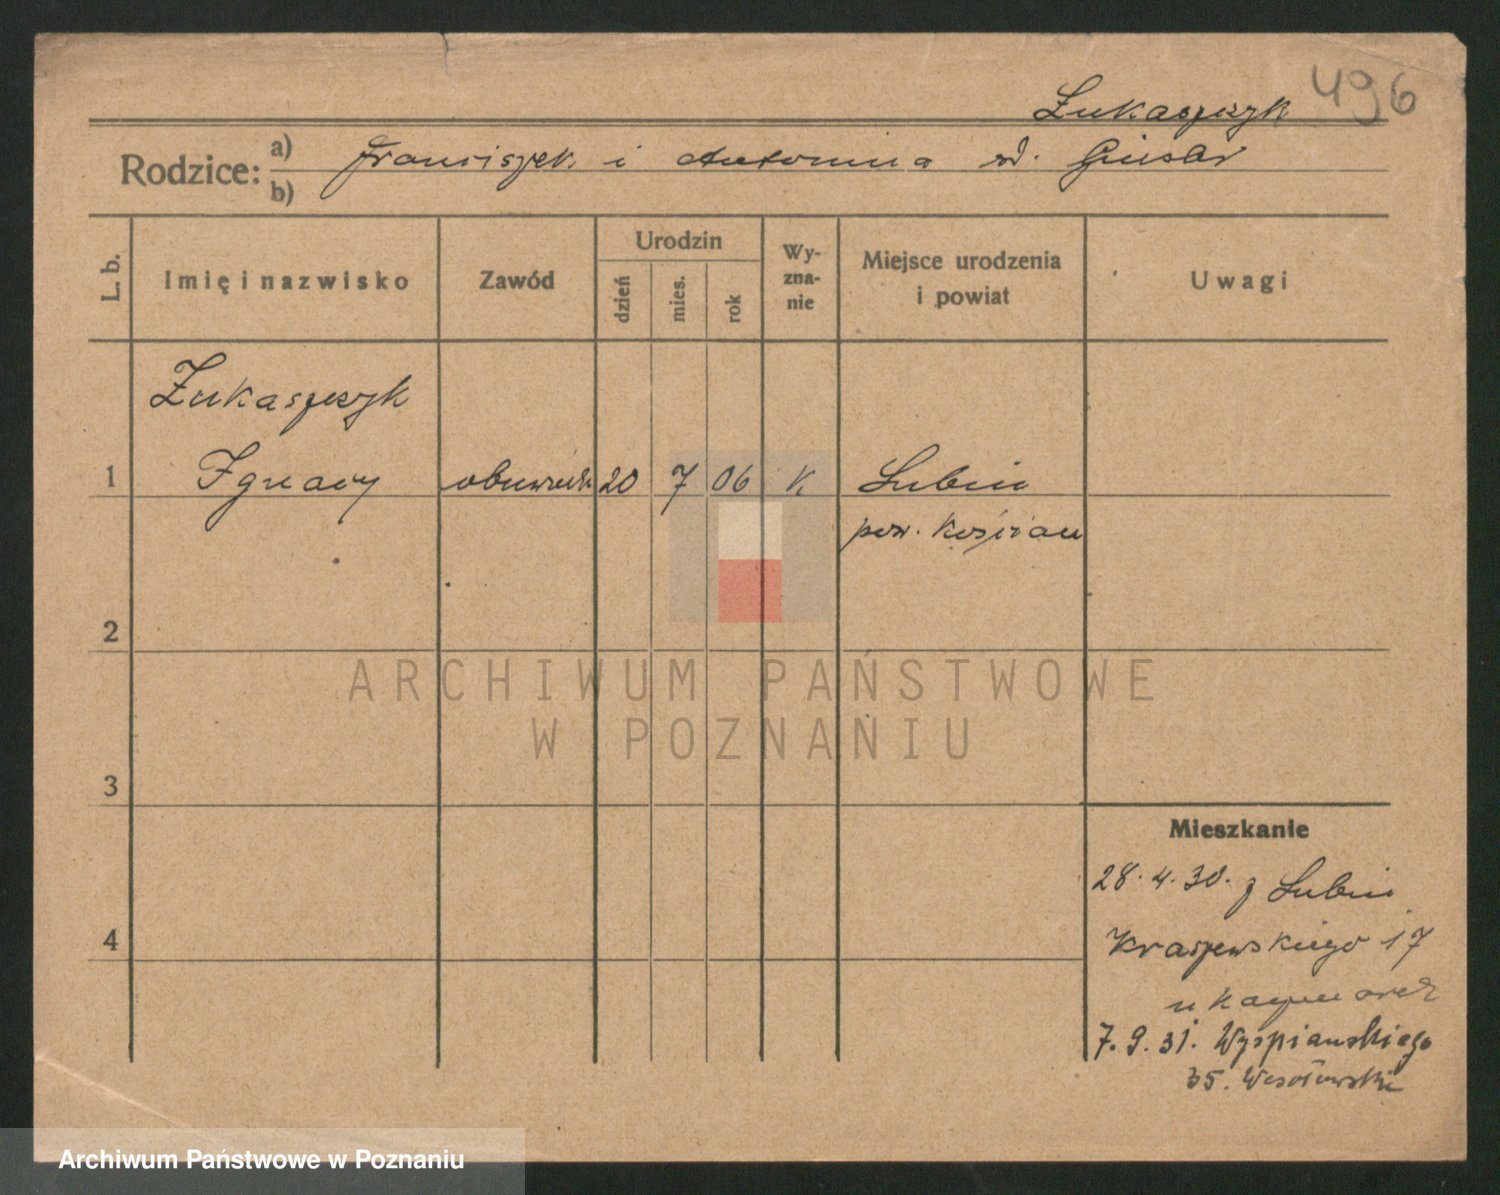 496
Łukaszczyk
Rodzice: a) Franciszek i Antonina
b)
L. b.
Imię i nazwisko
Zawód
Urodzin
dzień
mies.
rok
Wy-
zna-
nie
Miejsce urodzenia
i powiat
Uwagi
Łukaszczyk
1 Ignacy obuwnik 20 7 06 K Lubin
pow. Kościan
2
3
4
Mieszkanie
28. 4. 30. z Lubin
Kraszewskiego 17
u
7. 9. 31. Wyspiańskiego
35. Wesołowski
ARCHIWUM PAŃSTWOWE
W POZNANIU
Archiwum Państwowe w Poznaniu